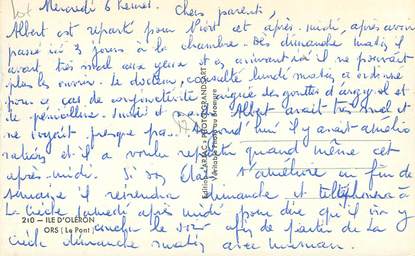 Mercredi 6 heures. Chers parents,
Albert est reparti pour Niort cet après-midi, après avoir
passé ici 3 jours à la chambre. Dès dimanche matin il
avait très mal aux yeux et en arrivant ici il ne pouvait
plus les ouvrir. Le docteur, consulté lundi matin a ordonné
pour ce cas de conjonctivite aiguë des gouttes d'argyrol et
de pénicilline. Lundi et mardi Albert avait très mal et
ne voyait presque pas. Aujourd'hui il y avait amélio
ration et il a voulu repartir quand même cet
après-midi. Si son état s'améliore en fin de
semaine il reviendra dimanche et téléphonera à
la Crèche samedi après midi pour dire qu'il ira y
coucher le soir afin de partir de la
Crèche dimanche matin avec maman.
210 - ILE D'OLÉRON
ORS (Le Pont)
Véritable Photo au Bromure